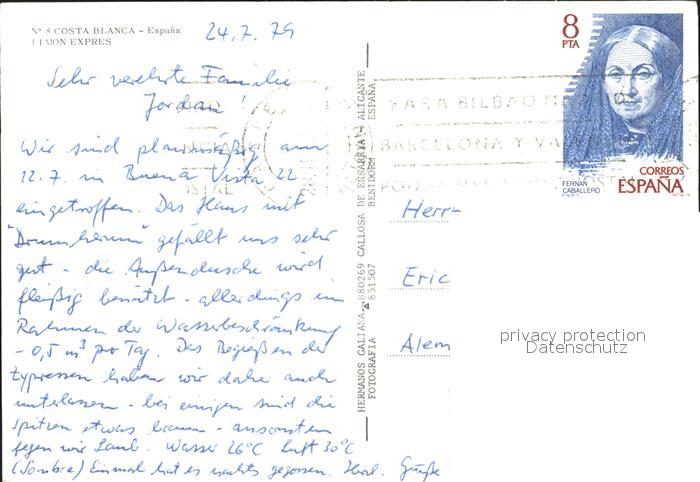 Nº 8 COSTA BLANCA - España
LIMON EXPRES
24.7.79
Sehr verehrte Familie
Jordan!
Wir sind planmäßig am
12.7. in Buena Vista 22
eingetroffen. Das Haus mit
"Drumherum" gefällt uns sehr
gut - die Außendusche wird
fleißig benützt - allerdings im
Rahmen der Wasserbeschränkung
- 0,5 m³ pro Tag. Das Begießen der
Zypressen haben wir daher auch
unterlassen - bei einigen sind die
Spitzen etwas braun - ansonsten
fegen wir Laub. Wasser 26°C Luft 30°C
(Sombra) Einmal hat es nachts gegossen. Herzl. Grüße
HERMANOS GALIANA - 880269 CALLOSA DE ENSARRIA - ALICANTE
FOTOGRAFIA ☎ 851507 BENIDORM ESPAÑA
PARA BILBAO
BARCELONA Y
8
PTA
FERNAN
CABALLERO
CORREOS
ESPAÑA
Herrn
Eric
Alem
privacy protection
Datenschutz